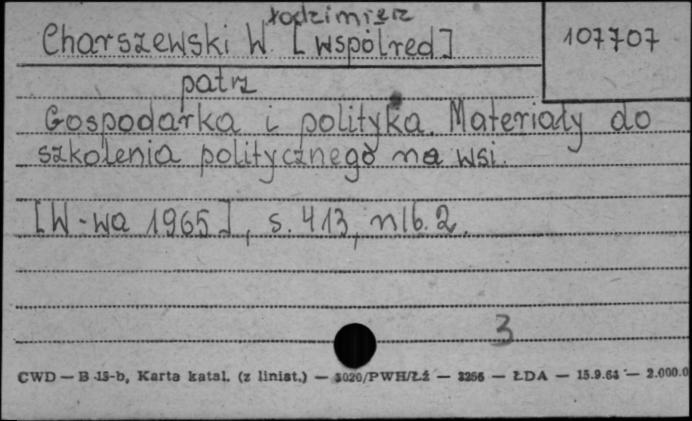 łodzimierz
Charszewski W. [współred]
107707
patrz
Gospodarka i polityka. Materiały do
szkolenia politycznego na wsi.
[W-wa 1965], s. 413, nlb. 2.
3
CWD — B-15-b, Karta katal. (z liniat.) — 3020/PWH/Łź — 3256 — ŁDA — 15.9.64 — 2.000.0